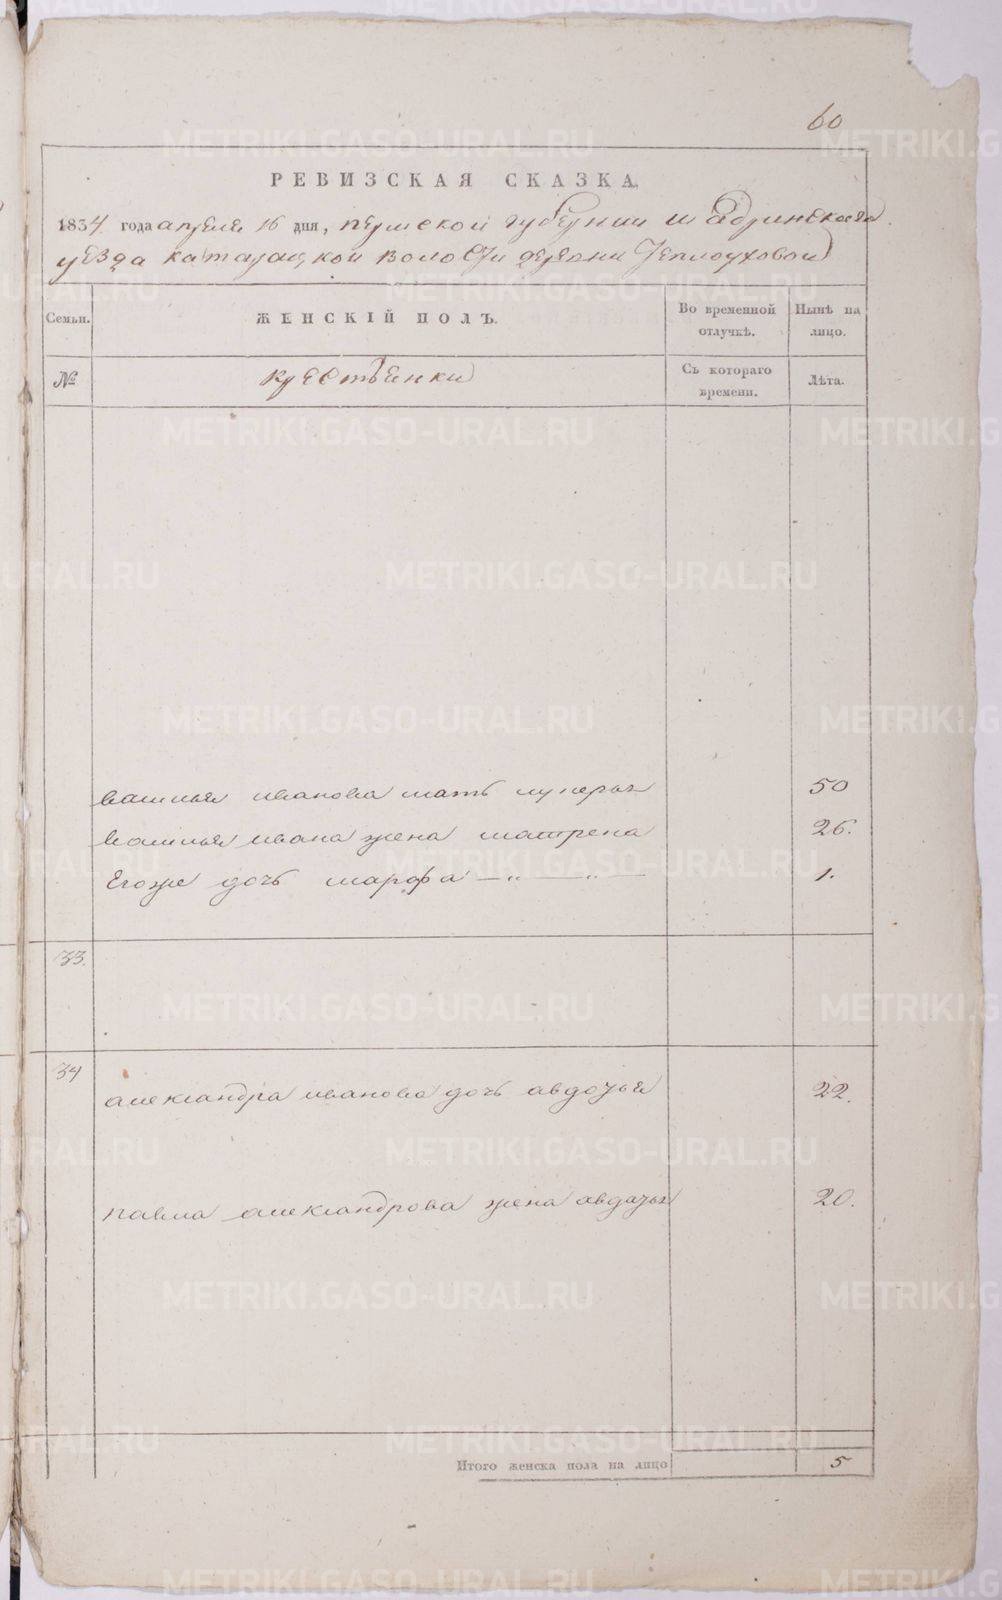 60
РЕВИЗСКАЯ СКАЗКА.
1834 года апреля 16 дня, пермской губернии шадринскаго
уезда катайской волости деревни Теплоуховой
Семьи. ЖЕНСКІЙ ПОЛЪ. Во временной отлучкѣ. Нынѣ на лицо.
№ крестьянки Съ котораго времени. Лѣта.
василья иванова мать лукерья 50
василья ивана жена матрена 26.
Егоже дочь марфа — „ — „ — 1.
33.
34
александра иванова дочь авдотья 22.
павла александрова жена авдотья 20.
Итого женска пола на лицо 5
METRIKI.GASO-URAL.RU